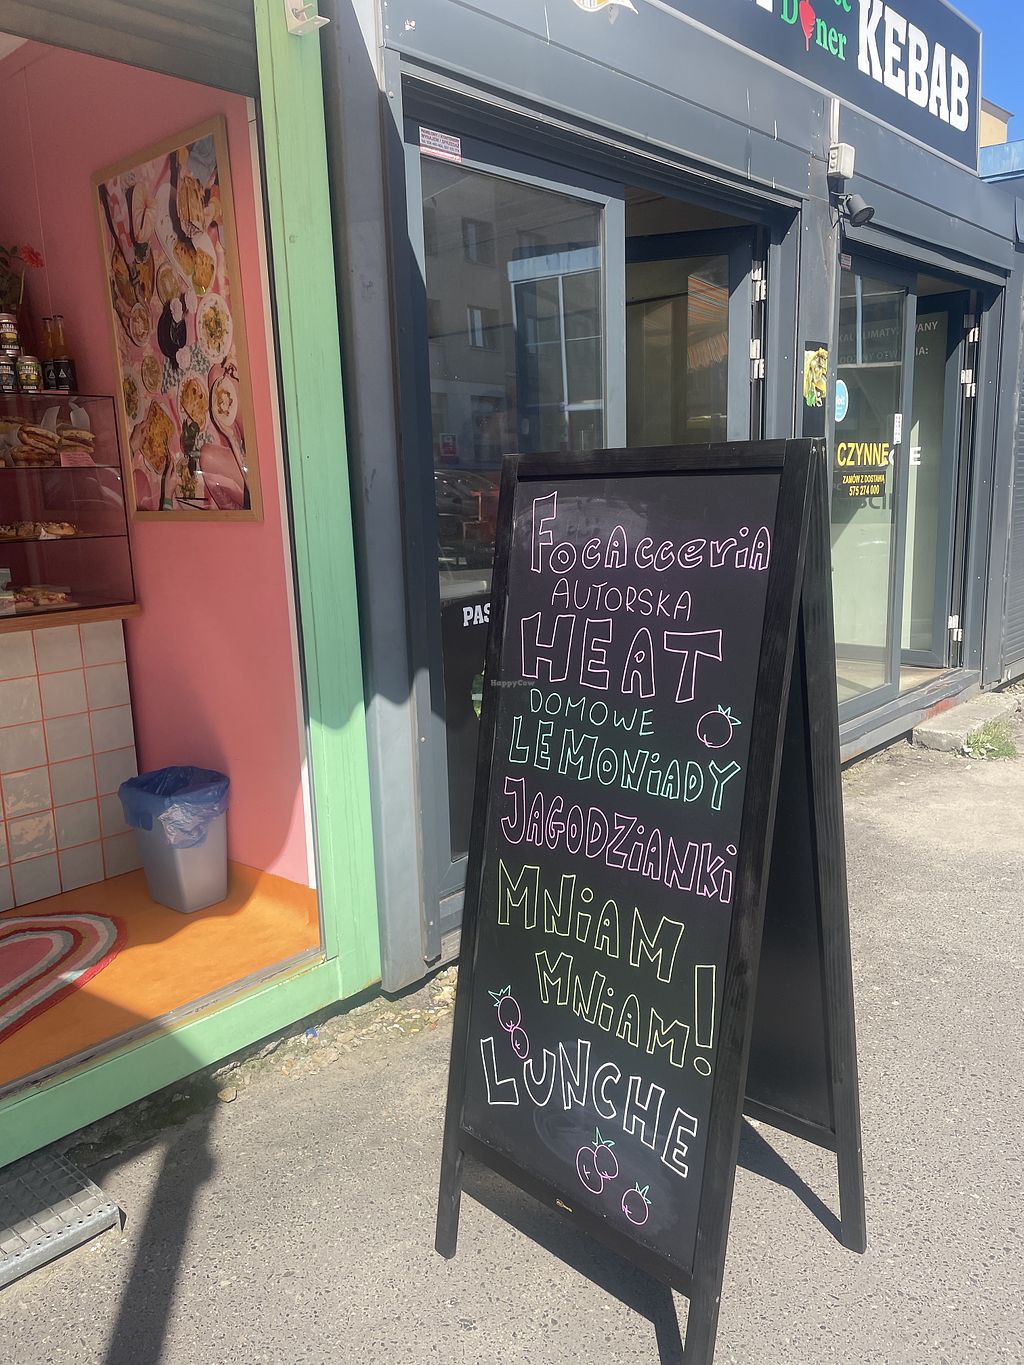 Döner
KEBAB
CZYNNE
ZAMÓW Z DOSTAWĄ
575 274 000
PAS
Focacceria
AUTORSKA
HEAT
HappyCow
DOMOWE
LEMONiADY
JAGODZiANKi
MNiAM
MNiAM!
LUNCHE